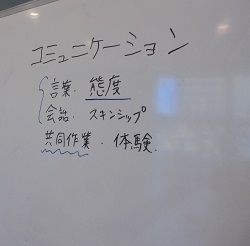 コミュニケーション
言葉・態度
会話・スキンシップ
共同作業・体験.